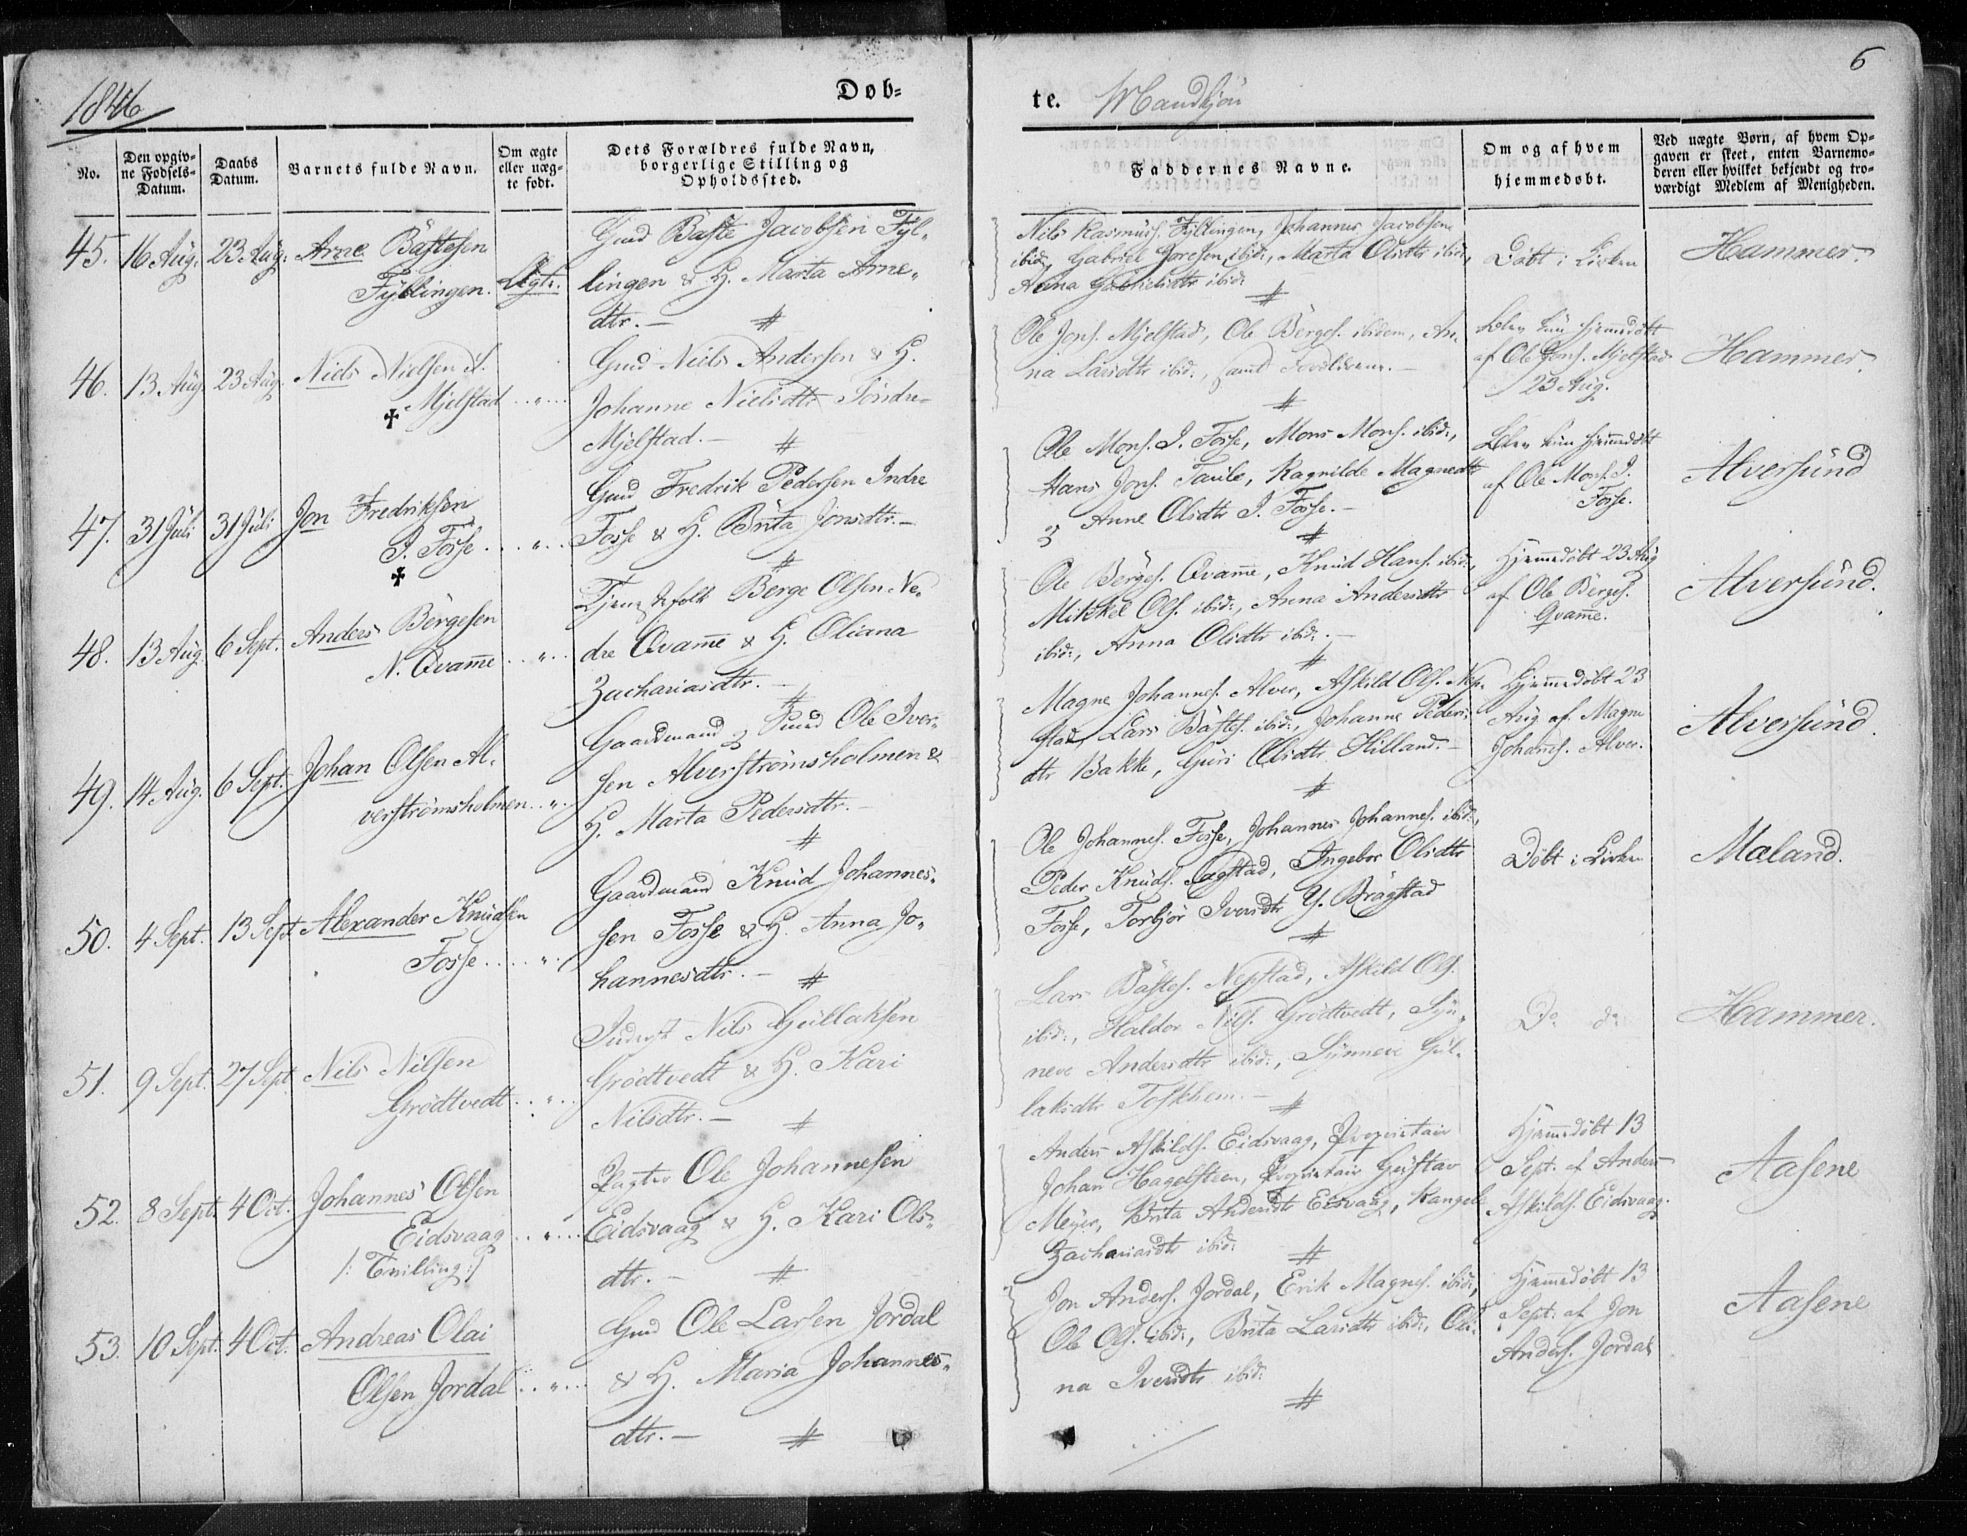 1846
Døb-
te. Mandkjøn
6
No.
Den opgiv-
ne Fødsels-
Datum.
Daabs
Datum.
Barnets fulde Navn.
Om ægte
eller uæg-
te født.
Dets Forældres fulde Navn,
borgerlige Stilling og
Opholdssted.
Faddernes Navne.
Om og af hvem
hjemmedøbt.
Ved uægte Børn, af hvem Op-
gaven er skeet, enten Barnemo-
deren eller hvilket bekjendt og tro-
værdigt Medlem af Menigheden.
45. 16 Aug. 23 Aug. Arne Båstesen
Fyllingen. Ægte.
Gmd Båste Jacobsen Fyl-
lingen & H. Marta Arne-
dtr. —
Nils Rasmus. Fyllingen, Johannes Jacobsen
ibid:, Gabriel ibid:, Marta Olsdtr ibid:,
Anna Gabrielsdtr ibid:
Døbt i Kirken
Hammer.
46. 13 Aug. 23 Aug. Niels Nielsen S.
Mjelstad ..„..
Gmd Niels Andersen & H.
Johanne Nielsdtr Søndre
Mjelstad. —
Ole Jons. Mjelstad, Ole Børges. ibidem, An-
na Larsdtr ibid:, samt Forældrene. —
Blev kun hjemmedøbt
af Ole Jons. Mjelstad
23 Aug.
Hammer.
47. 31 Juli 31 Juli Jon Fredriksen
I. Fosse ..„..
Gmd Fredrik Pedersen Indre
Fosse & H. Brita Jonsdtr. —
Ole Mons. I. Fosse, Mons Mons. ibid:,
Hans Jons. Taule, Ragnilde Magnedtr
og Anne Olsdtr I. Fosse. —
Blev kun hjemmedøbt
af Ole Mons. I.
Fosse.
Alversund
48. 13 Aug. 6 Sept. Anders Børgesen
N. Qvame ..„..
Tjenstefolk Børge Olsen Ne-
dre Qvame & H. Oliana
Zachariasdtr. —
Ole Børges. Qvame, Knud Hans. ibid:,
Mikkel Ols. ibid:, Anna Andersdtr
ibid:, Anna Olsdtr ibid: —
Hjemmedøbt 23 Aug
af Ole Børges.
Qvame.
Alversund.
49. 14 Aug. 6 Sept. Johan Olsen Al-
verstrømsholmen ..„..
Gaardmand og Smed Ole Iver-
sen Alverstrømsholmen &
H. Marta Pedersdtr. —
Magne Johannes. Alver, Askild Ols. Nep-
stad, Lars Båstes. ibid:, Johanne Peders-
dtr Bakke, Guri Olsdtr Hilland. —
Hjemmedøbt 23
Aug af Magne
Johans. Alver.
Alversund.
50. 4 Sept. 13 Sept Alexander Knudsen
Fosse ..„..
Gaardmand Knud Johannes-
sen Fosse & H. Anna Jo-
hannesdtr. —
Ole Johannes. Fosse, Johannes Johannes. ibid:,
Peder Knuds. Sagstad, Ingebor Olsdtr
Fosse, Torbjør Iversdtr Y. Brøgstad
Døbt i Kirken
Maland.
51. 9 Sept. 27 Sept Nils Nilsen
Grødtvedt ..„..
Inderst Nils Gullaksen
Grødtvedt & H. Kari
Nilsdtr. —
Lars Båstes. Nepstad, Askild Ols.
ibid:, Haldor Nils. Grødtvedt, Syn-
neve Andersdtr ibid:, Synneve Gul-
laksdtr Toskhem. —
Do do
Hammer.
52. 8 Sept. 4 Oct. Johannes Olsen
Eidsvaag ..„..
/: Tvilling :/
Pagter Ole Johannesen
Eidsvaag & H. Kari Ols-
dtr. —
Anders Askilds. Eidsvaag, Proprietair
Johan Hagelsteen, Proprietair Gustav
Meyer, Brita Andersdt Eidsvaag,
Zachariasdtr ibid:
Hjemmedøbt 13
Sept. af Anders
Askilds. Eidsvaag.
Aasene
53. 10 Sept. 4 Oct. Andreas Olai
Olsen Jordal ..„..
Gmd Ole Larsen Jordal
& H. Maria Johannes-
dtr. —
Jon Anders. Jordal, Erik Magnes. ibid:,
Ole Ols. ibid:, Brita Larsdtr ibid:, Oli-
na Iversdtr ibid:
Hjemmedøbt 13
Sept. af Jon
Anders. Jordal
Aasene